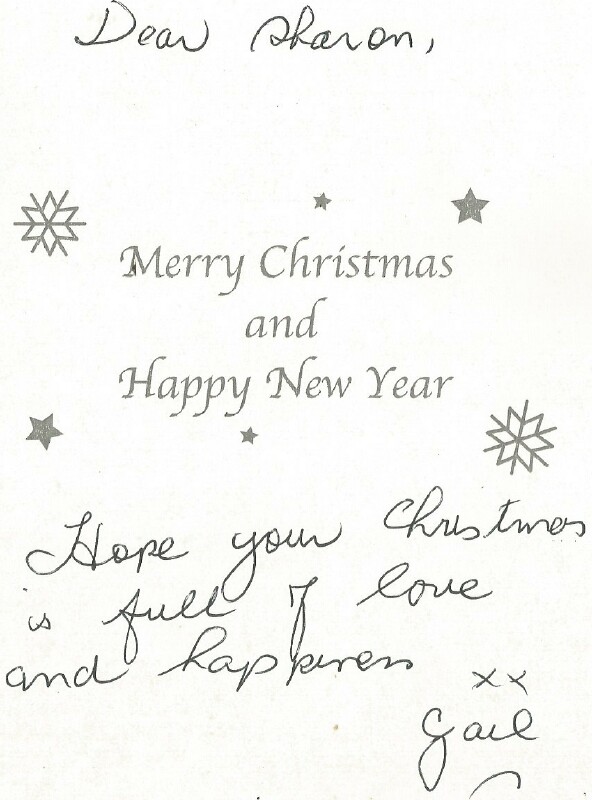 Dear Sharon,
Merry Christmas
and
Happy New Year
Hope your Christmas
is full of love
and happiness
xx
Gail